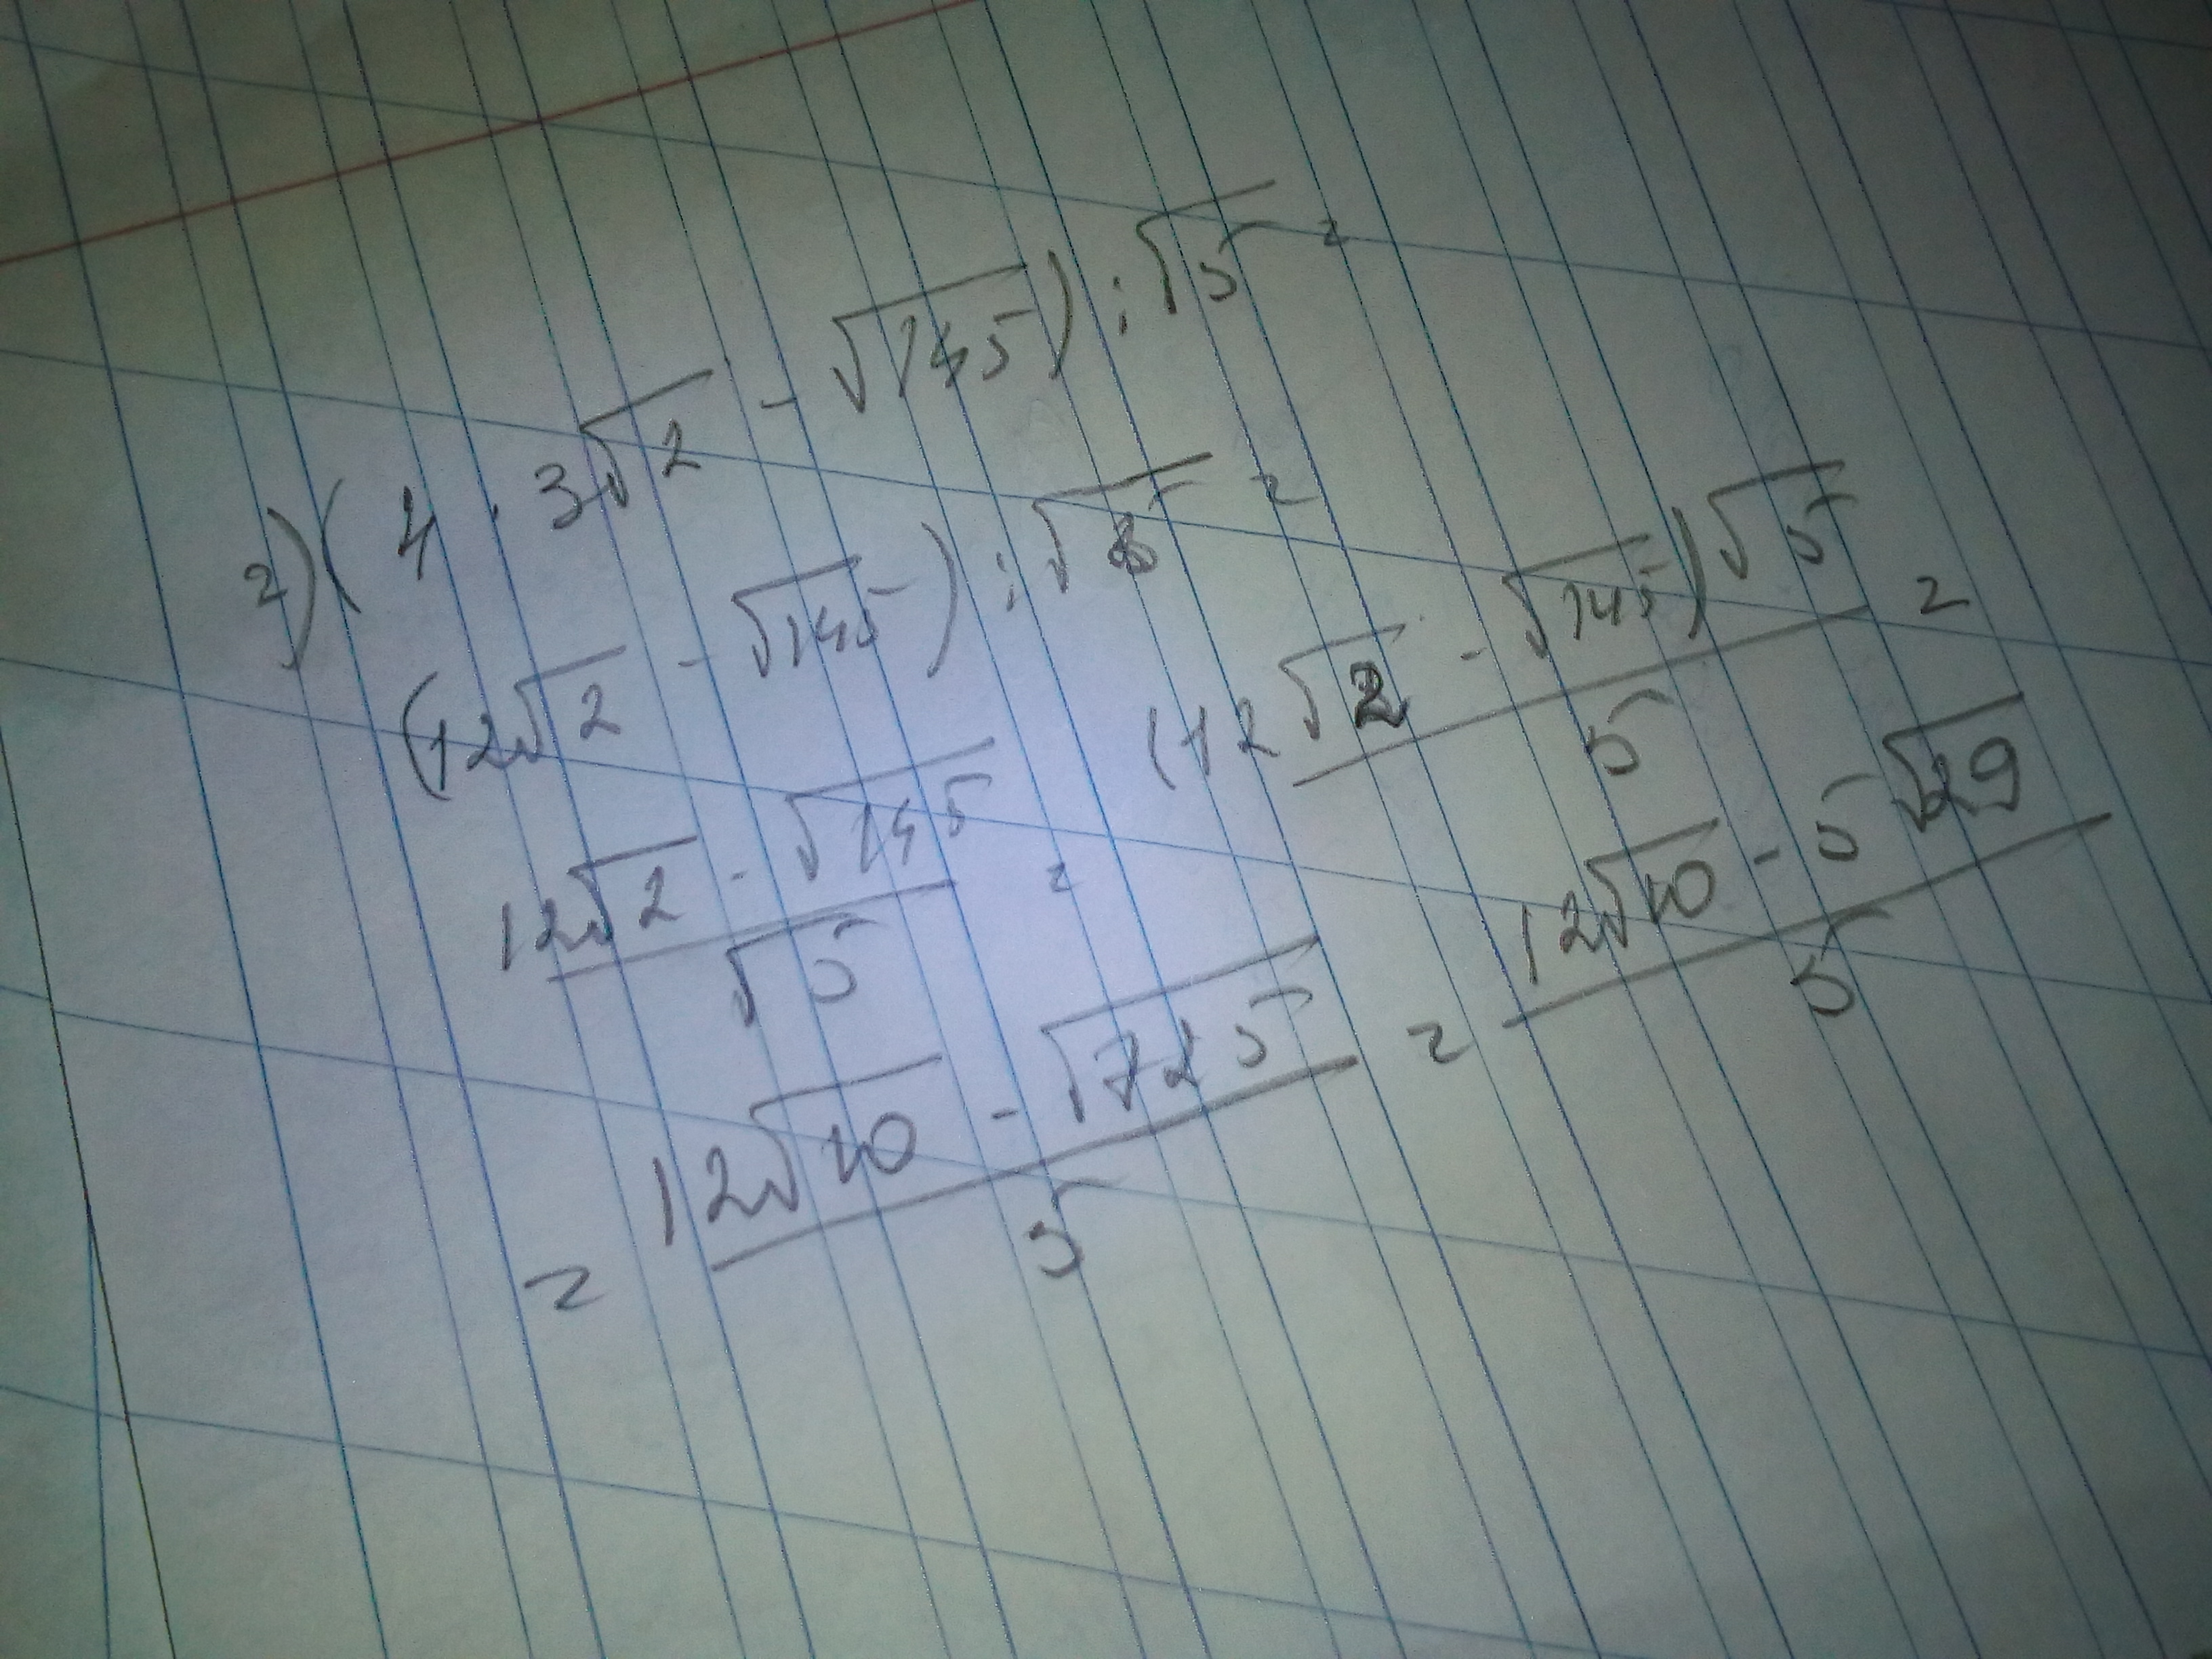 2) (4 · 3√2 - √145) : √5 =
(12√2 - √145) : √5 =
12√2 - √145 / √5 = (12√2 - √145)√5 / 5 =
= 12√10 - √725 / 5 = 12√10 - 5√29 / 5